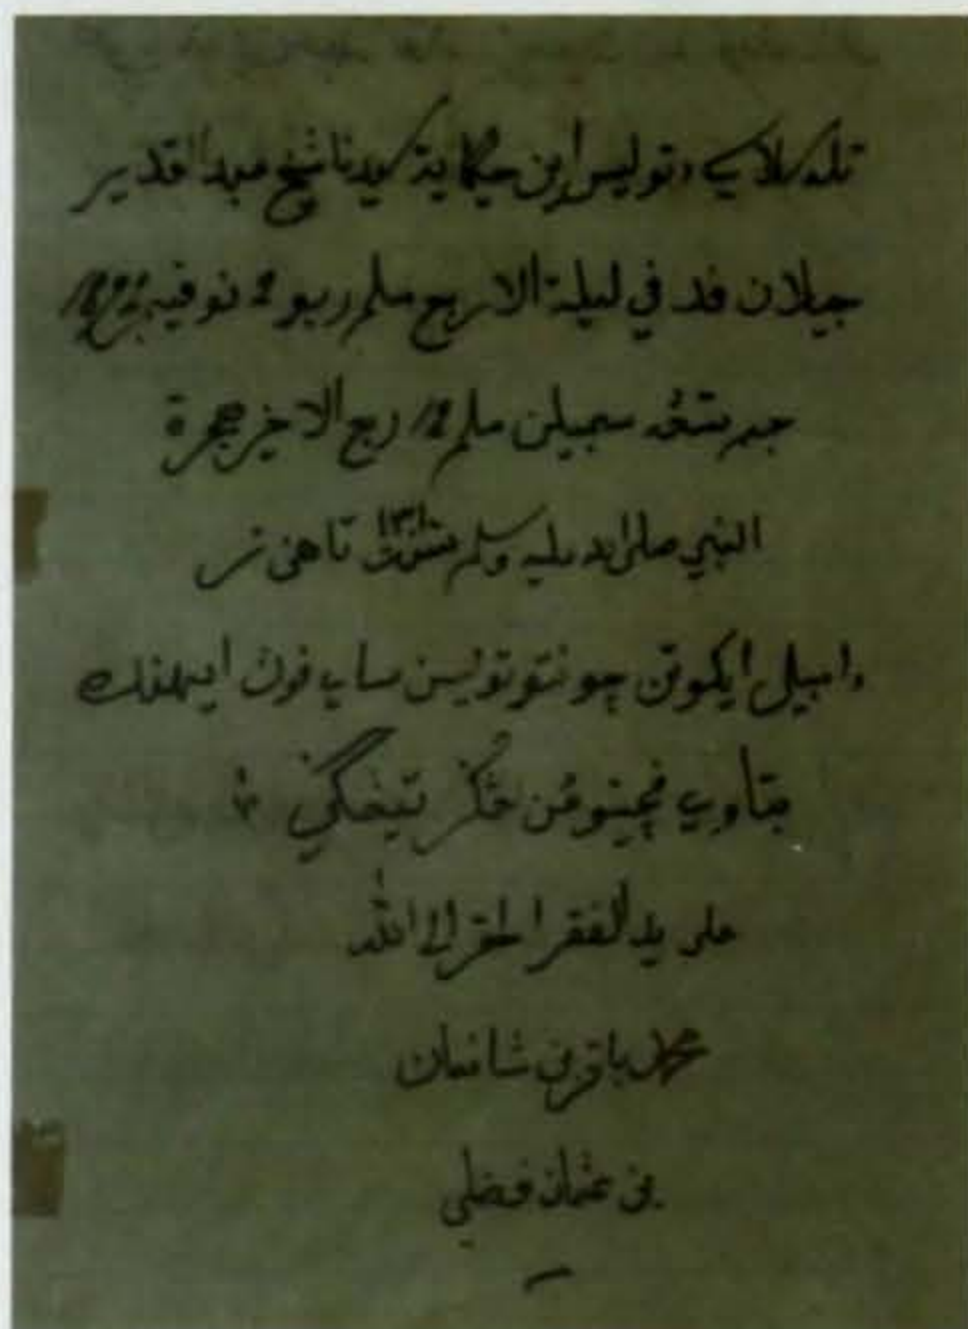 تله سلاسي دتوليس اين حكاية سيدنا شيخ عبد القدير
جيلان فد في ليلة الاربع ملم ربو 2 نوفيمبر
جم ستڠه سمبيلن ملم ربيع الاخر هجرة
النبي صلى الله عليه وسلم سنة ١٣١ تاهن
دامبيل ايكوتن چونتو توليسن ساي فون
بتاوي فچينوڠن لڠكر تيڠݢي
على يد الفقر الحقر الى الله
محمد باقر بن شافعان
بن عثمان فضلي